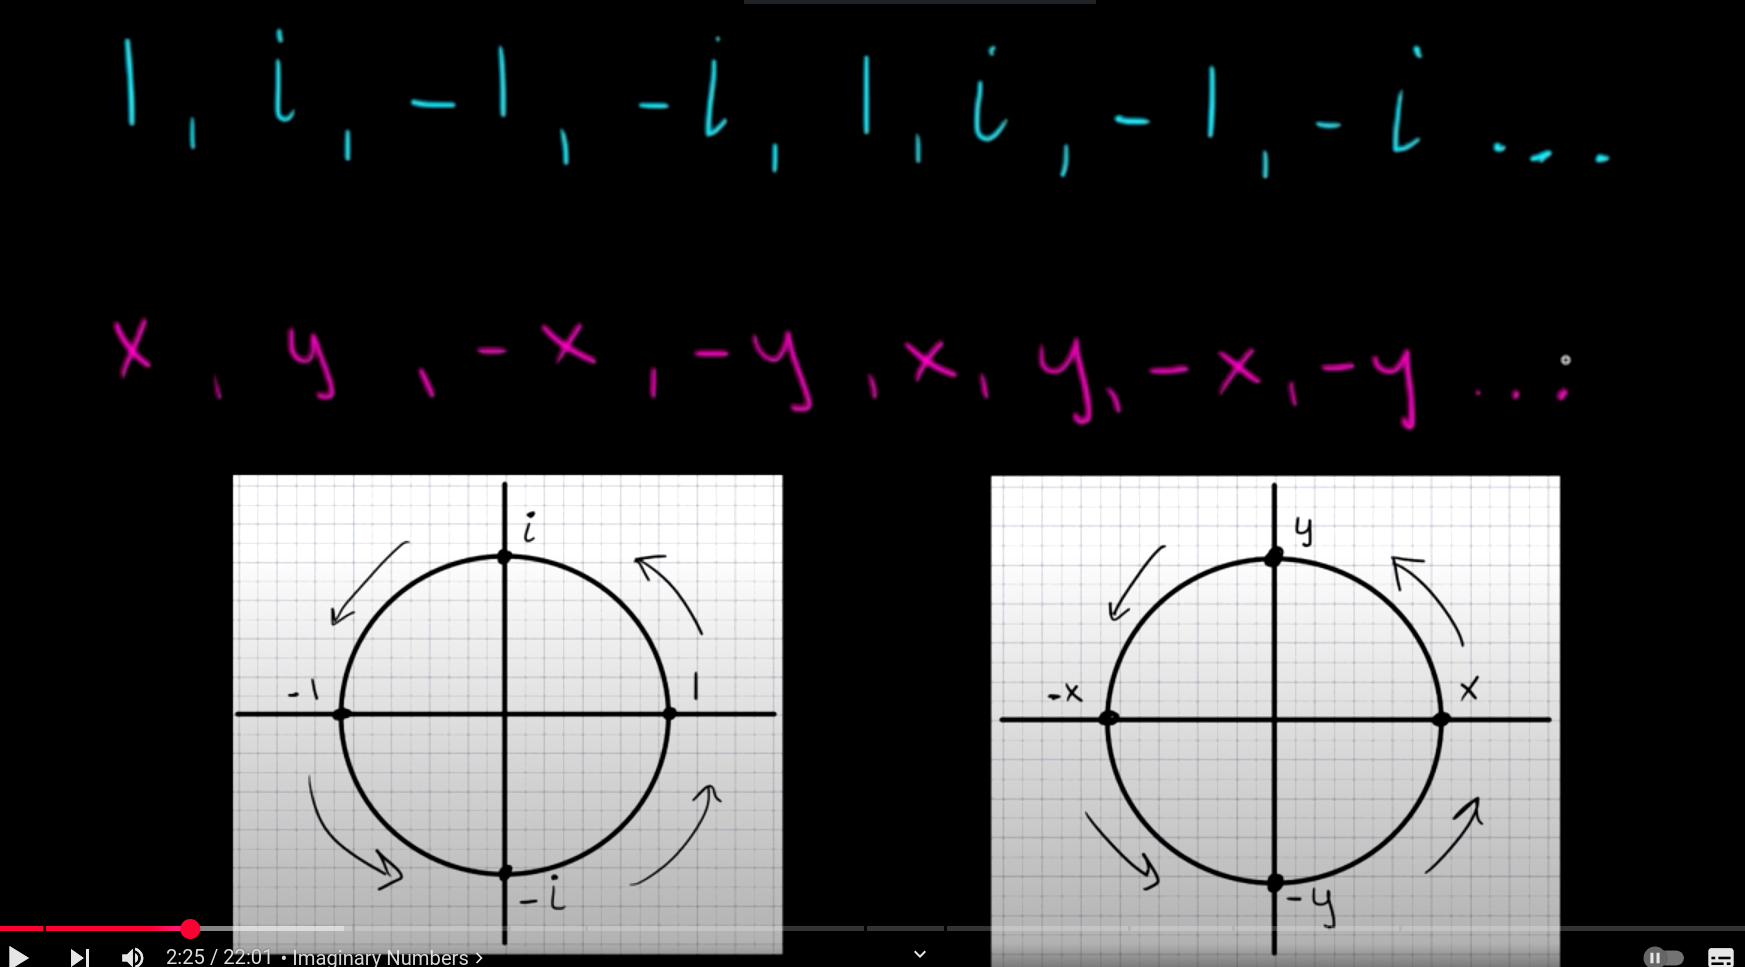 1, i, -1, -i, 1, i, -1, -i ...
x, y, -x, -y, x, y, -x, -y ...
i
-1
1
-i
y
-x
x
-y
2:25 / 22:01 • Imaginary Numbers >